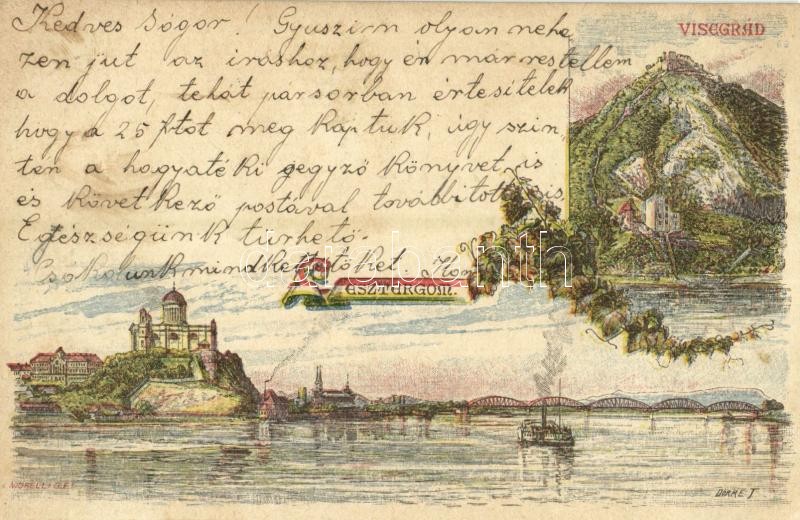 Kedves Sógor! Gyuszim olyan nehe
zen jut az iráshoz, hogy én már restellem
a dolgot, tehát parsorban értesitelek
hogy a 25 ftot meg kaptuk, úgy szin,
ten a hagyatéki jegyző könyvet is
és következő postával továbbitotta is.
Egészségünk türhető.
Csokolunk mindkettőtöket.
VISEGRÁD
ESZTERGOM.
darabanth
MORELLI G. F.
DÖRRE T.